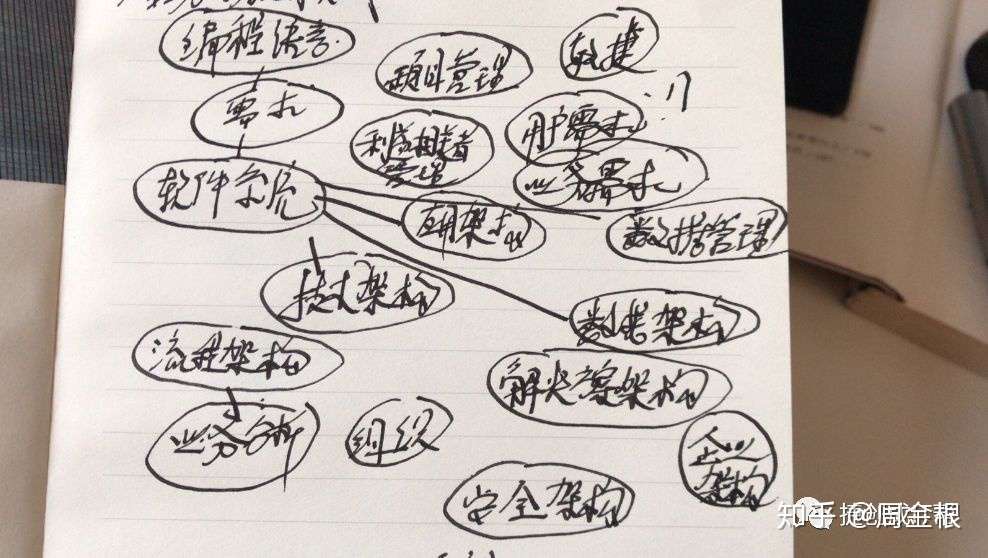 编程语言
项目管理
敏捷
需求
利益相关者
管理
用户需求
业务需求
软件系统
应用架构
数据管理
技术架构
数据架构
流程架构
解决方案架构
业务分析
组织
企业
架构
安全架构
知乎 @周金根